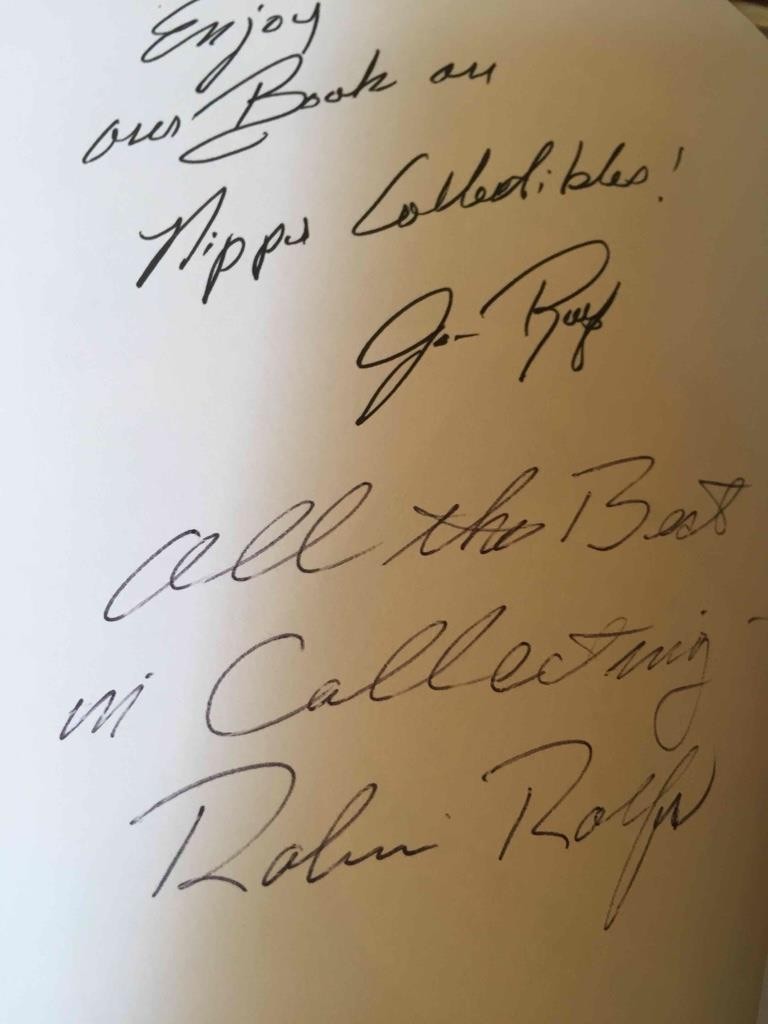 Enjoy
our Book on
Nipper Collectibles!
Joan Rolfs
All the Best
in Collecting -
Robin Rolfs